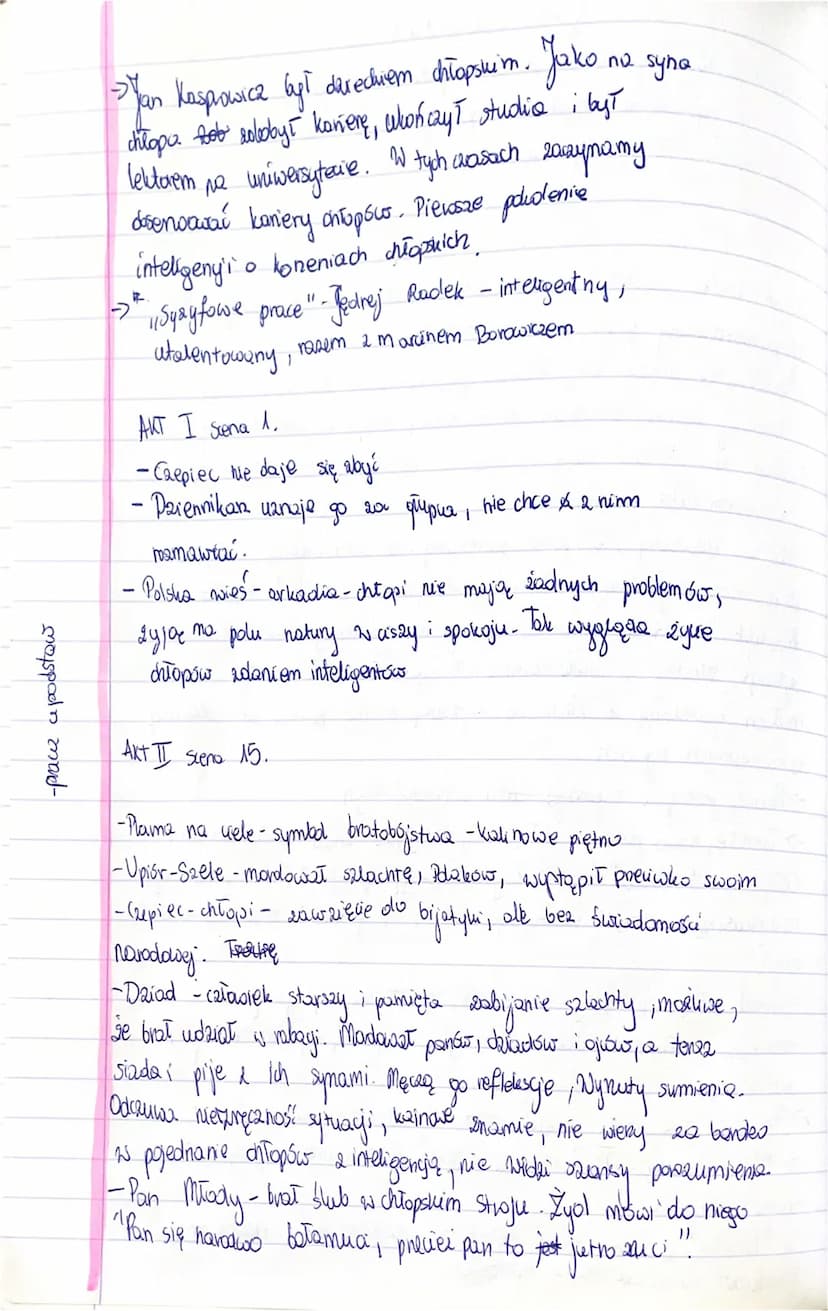 → Jan Kasprowicz był dzieckiem chłopskim. Jako na syna
chłopa zdobył karierę, ukończył studia i był
lektorem na uniwersytecie. W tych czasach zaczynamy
obserwować kariery chłopów. Pierwsze pokolenie
inteligencji o korzeniach chłopskich.
→* "Syzyfowe prace" - Jędrej Radek - inteligentny,
utalentowany, razem z Marcinem Borowiczem
AKT I scena 1.
- Czepiec nie daje się zbyć
- Dziennikarz uznaje go za głupca, nie chce z nim
rozmawiać.
- Polska wieś - arkadia - chłopi nie mają żadnych problemów,
żyją na polu natury w ciszy i spokoju. Tak wygląda życie
chłopów zdaniem inteligentów
- praca u podstaw
AKT II scena 15.
- Plama na ciele - symbol bratobójstwa - kainowe piętno
- Upiór - Szele - mordował szlachtę, Polaków, wystąpił przeciwko swoim
- Czepiec - chłopi - zawzięcie do bijatyki, ale bez świadomości
narodowej.
- Dziad - człowiek starszy i pamięta zabijanie szlachty, możliwe,
że brał udział w rabacji. Mordował panów, dziadów i ojców, a teraz
siada i pije z ich synami. Męczą go refleksje, wyrzuty sumienia.
Odczuwa niezręczność sytuacji, kainowe znamię, nie wierzy za bardzo
w pojednanie chłopów z inteligencją, nie widzi szansy porozumienia.
- Pan Młody - brał ślub w chłopskim stroju. Żyd mówi do niego
"Pan się narodowo bałamuci, przecież pan to jutro zruci".